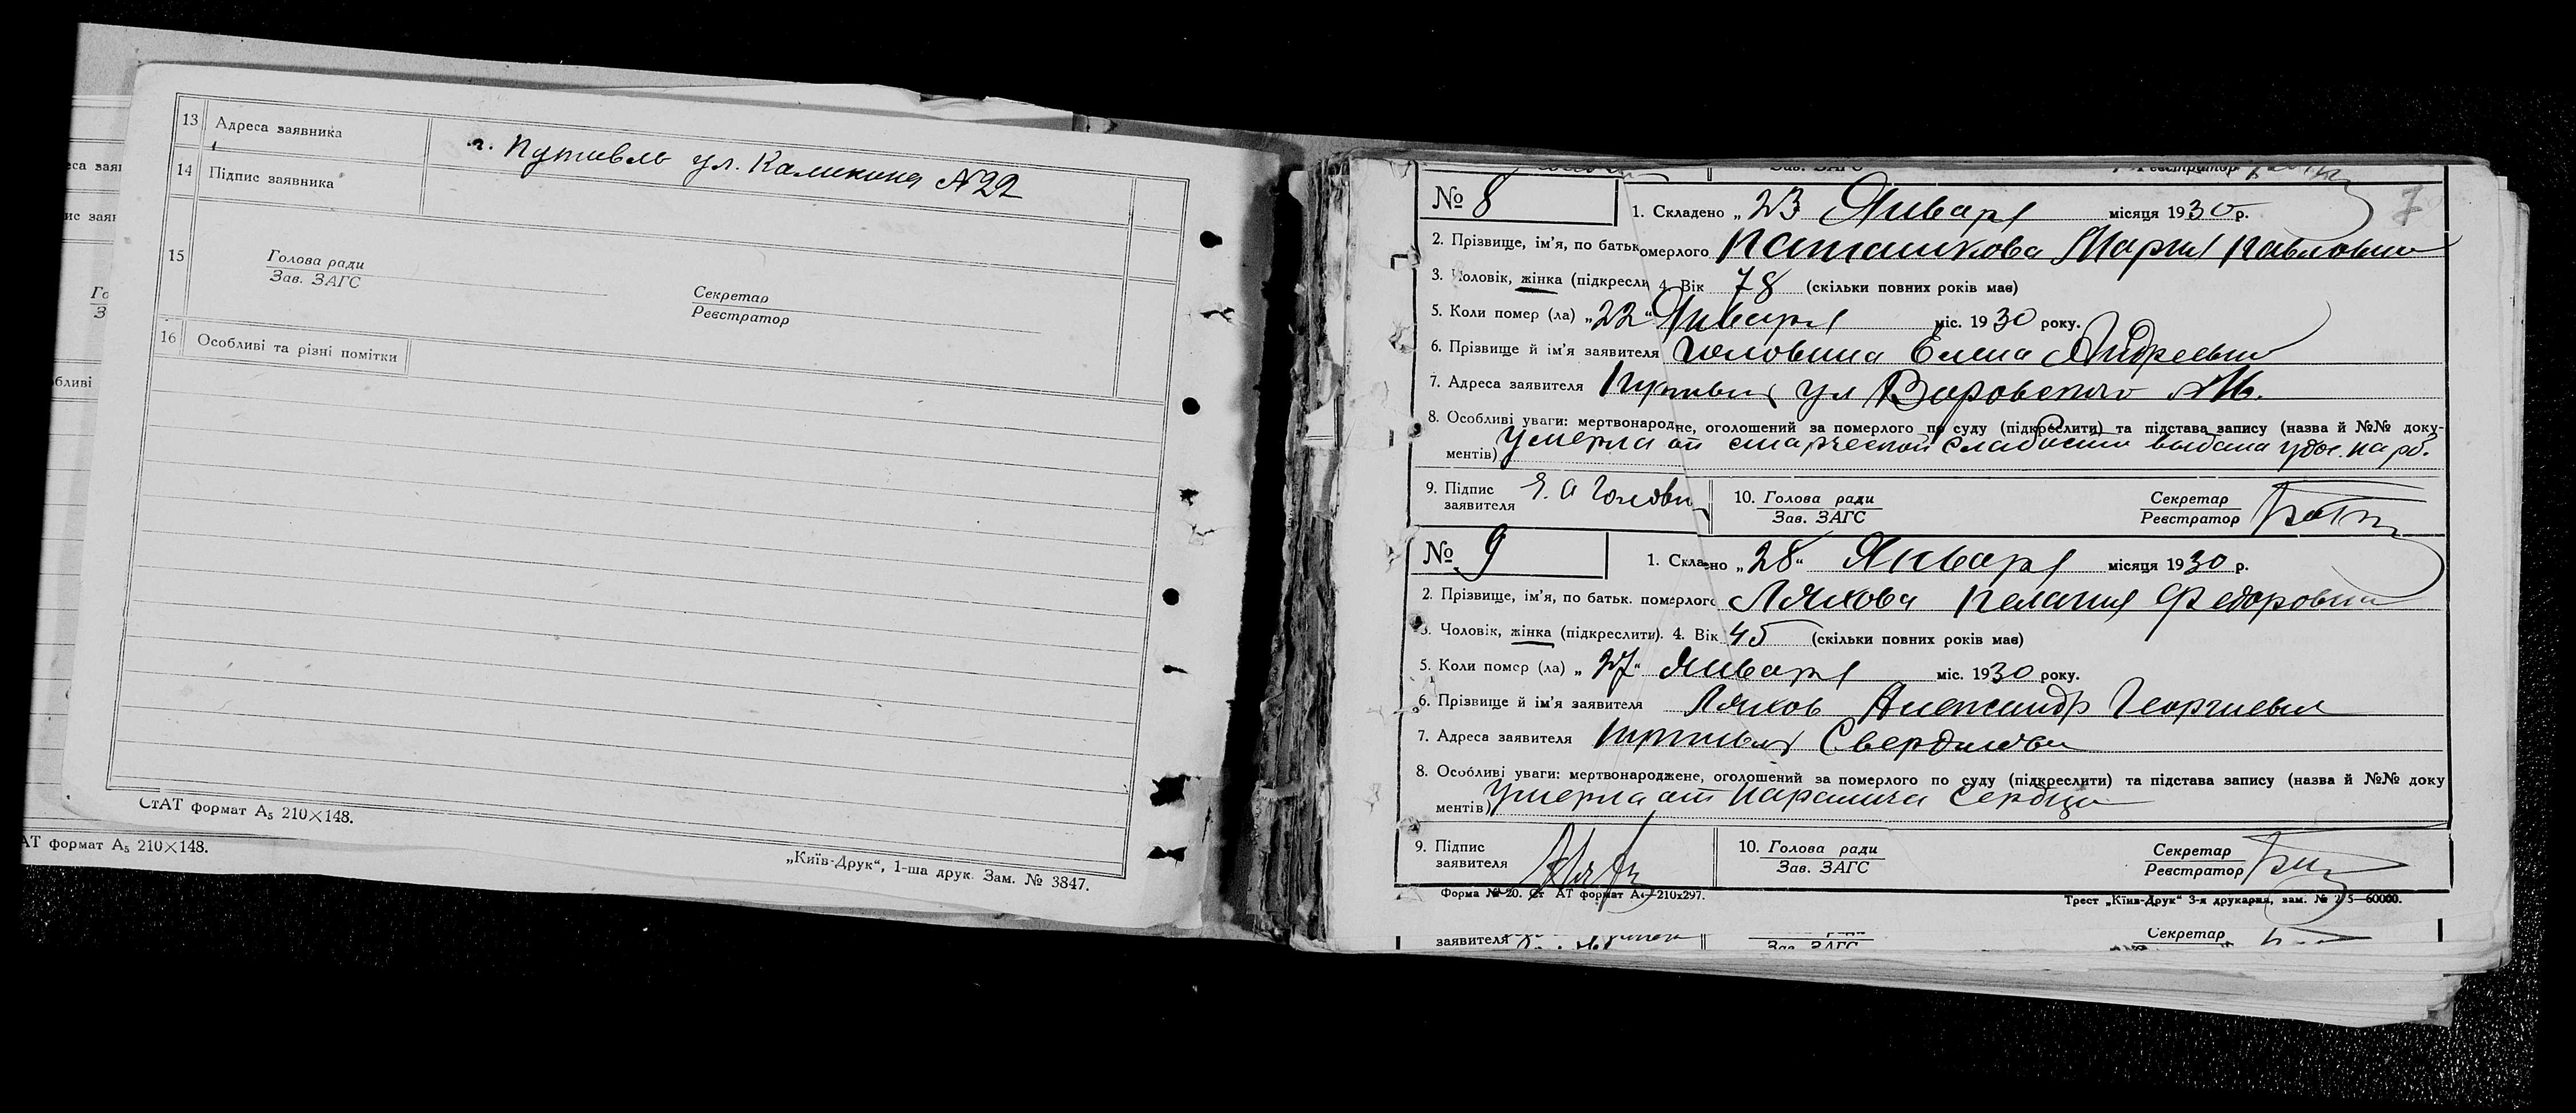 са зая
ис заян
Го
З
бливі
13 Адреса заявника г. Путивль ул. Калинина №22
14 Підпис заявника
15 Голова ради
Зав. ЗАГС
Секретар
Реєстратор
16 Особливі та різні помітки
СтАТ формат А₅ 210×148.
„Київ-Друк“, 1-ша друк. Зам. № 3847.
АТ формат А₅ 210×148.
Зав. ЗАГС Реєстратор
7
№ 8 1. Складено „23 Января місяця 1930 р.
2. Прізвище, ім'я, по батьк омерлого Каташкова Мария Павловна
3. Чоловік, жінка (підкресли 4. Вік 78 (скільки повних років має)
5. Коли помер (ла) „22“ Января міс. 1930 року.
6. Прізвище й ім'я заявителя Головина Елена Андреевна
7. Адреса заявителя Путивль ул Воровского
8. Особливі уваги: мертвонародне, оголошений за померлого по суду (підкреслити) та підстава запису (назва й №№ доку-
ментів) Умерла от старческой слабости выдана удос. на рб.
9. Підпис заявителя Е. А Головин 10. Голова ради
Зав. ЗАГС
Секретар
Реєстратор
№ 9 1. Складено „28“ Января місяця 1930 р.
2. Прізвище, ім'я, по батьк. померлого Ляхова Пелагия Федоровна
3. Чоловік, жінка (підкреслити). 4. Вік 45 (скільки повних років має)
5. Коли помер (ла) „27“ Января міс. 1930 року.
6. Прізвище й ім'я заявителя Ляхов Александр Георгиевич
7. Адреса заявителя Путивль Свердлова
8. Особливі уваги: мертвонароджене, оголошений за померлого по суду (підкреслити) та підстава запису (назва й №№ доку
ментів) Умерла от паралича сердца
9. Підпис заявителя
10. Голова ради
Зав. ЗАГС
Секретар
Реєстратор
Форма № 20. Ст АТ формат А₄—210х297.
Трест „Київ-Друк“ 3-я друкарня, зам. № 2 5—60000.
заявителя
Зав. ЗАГС
Секретар